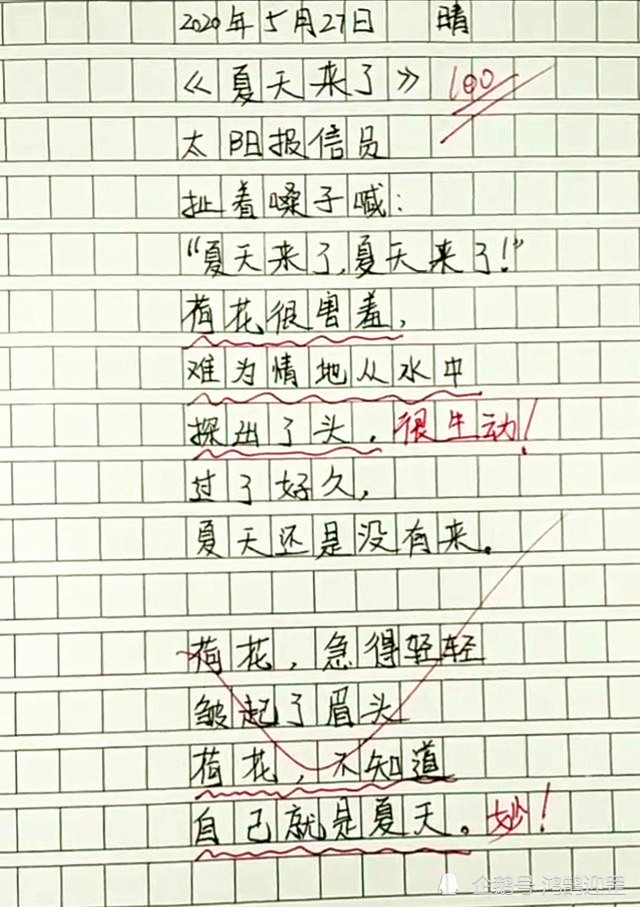 2020年5月27日 晴
《夏天来了》 100
太阳报信员
扯着嗓子喊:
“夏天来了,夏天来了!”
荷花很害羞,
难为情地从水中
探出了头。很生动!
过了好久,
夏天还是没有来。
荷花,急得轻轻
皱起了眉头
荷花,不知道
自己就是夏天。妙!
企鹅号 鸿鹄迎罡